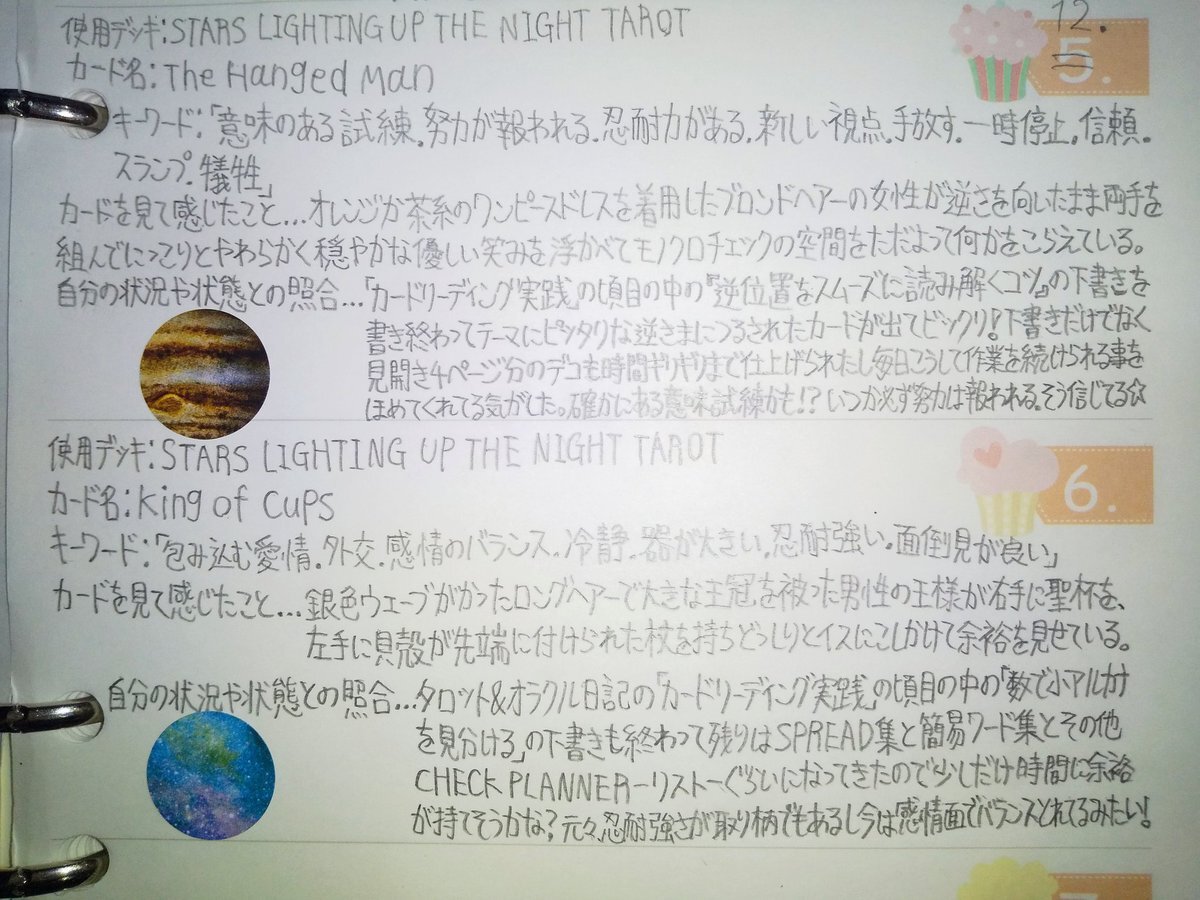 使用デッキ:STARS LIGHTING UP THE NIGHT TAROT
12.
5.
カード名:The Hanged Man
キーワード:「意味のある試練.努力が報われる.忍耐力がある.新しい視点.手放す.一時停止.信頼.
スランプ.犠牲」
カードを見て感じたこと...オレンジか茶系のワンピースドレスを着用したブロンドヘアーの女性が逆さを向いたまま両手を
組んでにっこりとやわらかく穏やかな優しい笑みを浮かべてモノクロチェックの空間をただよって何かをこらえている。
自分の状況や状態との照合...「カードリーディング実践」の項目の中の『逆位置をスムーズに読み解くコツ』の下書きを
書き終わってテーマにピッタリな逆さまにつるされたカードが出てビックリ!下書きだけでなく
見開き4ページ分のデコも時間ギリギリまで仕上げられたし毎日こうして作業を続けられる事を
ほめてくれてる気がした。確かにある意味試練かも!?いつか必ず努力は報われる.そう信じてる☆
使用デッキ:STARS LIGHTING UP THE NIGHT TAROT
6.
カード名:King of Cups
キーワード:「包み込む愛情.外交.感情のバランス.冷静.器が大きい.忍耐強い.面倒見が良い」
カードを見て感じたこと...銀色ウェーブがかったロングヘアーで大きな王冠を被った男性の王様が右手に聖杯を、
左手に貝殻が先端に付けられた杖を持ちどっしりとイスにこしかけて余裕を見せている。
自分の状況や状態との照合...タロット&オラクル日記の「カードリーディング実践」の項目の中の「数で小アルカナ
を見分ける」の下書きも終わって残りはSPREAD集と簡易ワード集とその他
CHECK PLANNERーリストーぐらいになってきたので少しだけ時間に余裕
が持てそうかな?元々忍耐強さが取り柄でもあるし今は感情面でバランスとれてるみたい!